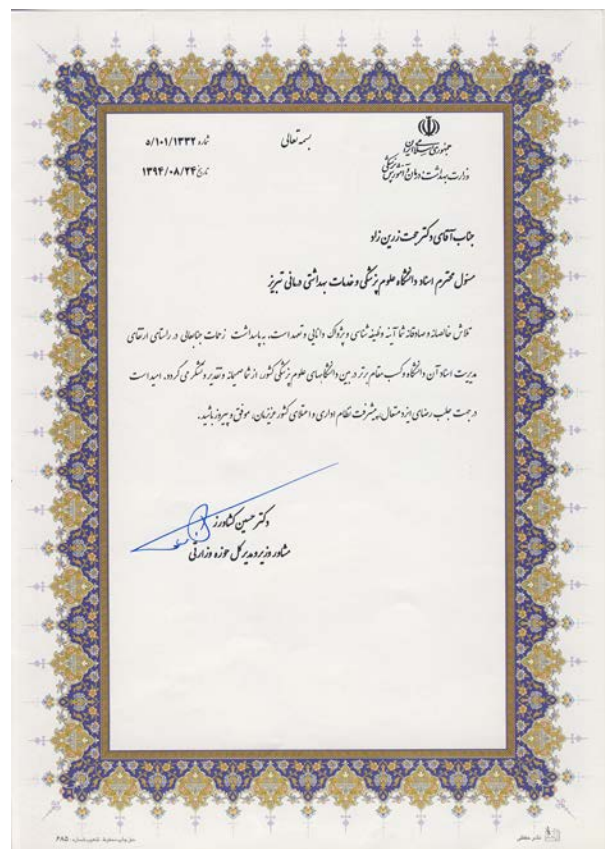 بسمه تعالی
جمهوری اسلامی ایران
وزارت بهداشت، درمان و آموزش پزشکی
شماره ۵/۱۰۱/۱۳۳۲
تاریخ ۱۳۹۴/۰۸/۲۴
جناب آقای دکتر حجت زرین زاد
مسئول محترم اسناد دانشگاه علوم پزشکی و خدمات بهداشتی درمانی تبریز
تلاش خالصانه و صادقانه شما آینه وظیفه شناسی و پژواک دانایی و تعهد است. به پاسداشت زحمات جنابعالی در راستای ارتقای
مدیریت اسناد آن دانشگاه و کسب مقام برتر در بین دانشگاههای علوم پزشکی کشور، از شما صمیمانه تقدیر و تشکر می گردد. امید است
در جهت جلب رضای ایزد متعال، پیشرفت نظام اداری و اعتلای کشور عزیزمان، موفق و پیروز باشید.
دکتر حسین کشاورز
مشاور وزیر و مدیر کل حوزه وزارتی